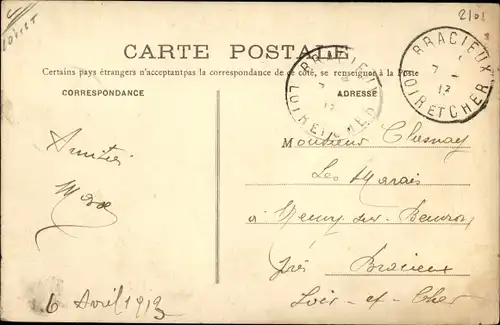 Loiret
2101
CARTE POSTALE
Certains pays étrangers n'acceptant pas la correspondance de ce côté, se renseigner à la Poste
CORRESPONDANCE
ADRESSE
BRACIEUX
7 -
13
LOIR ET CHER
BRACIEUX
7 -
13
LOIR ET CHER
Amitiés
Monsieur Chesnay
Les Marais
à Neuvy sur Beuvron
près Bracieux
Loir-et-Cher
6 Avril 1913